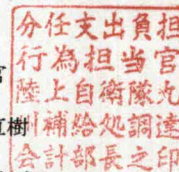 分任支出負担
行為担当官
陸上自衛隊九
州補給処調達
会計部長之印
官
樹